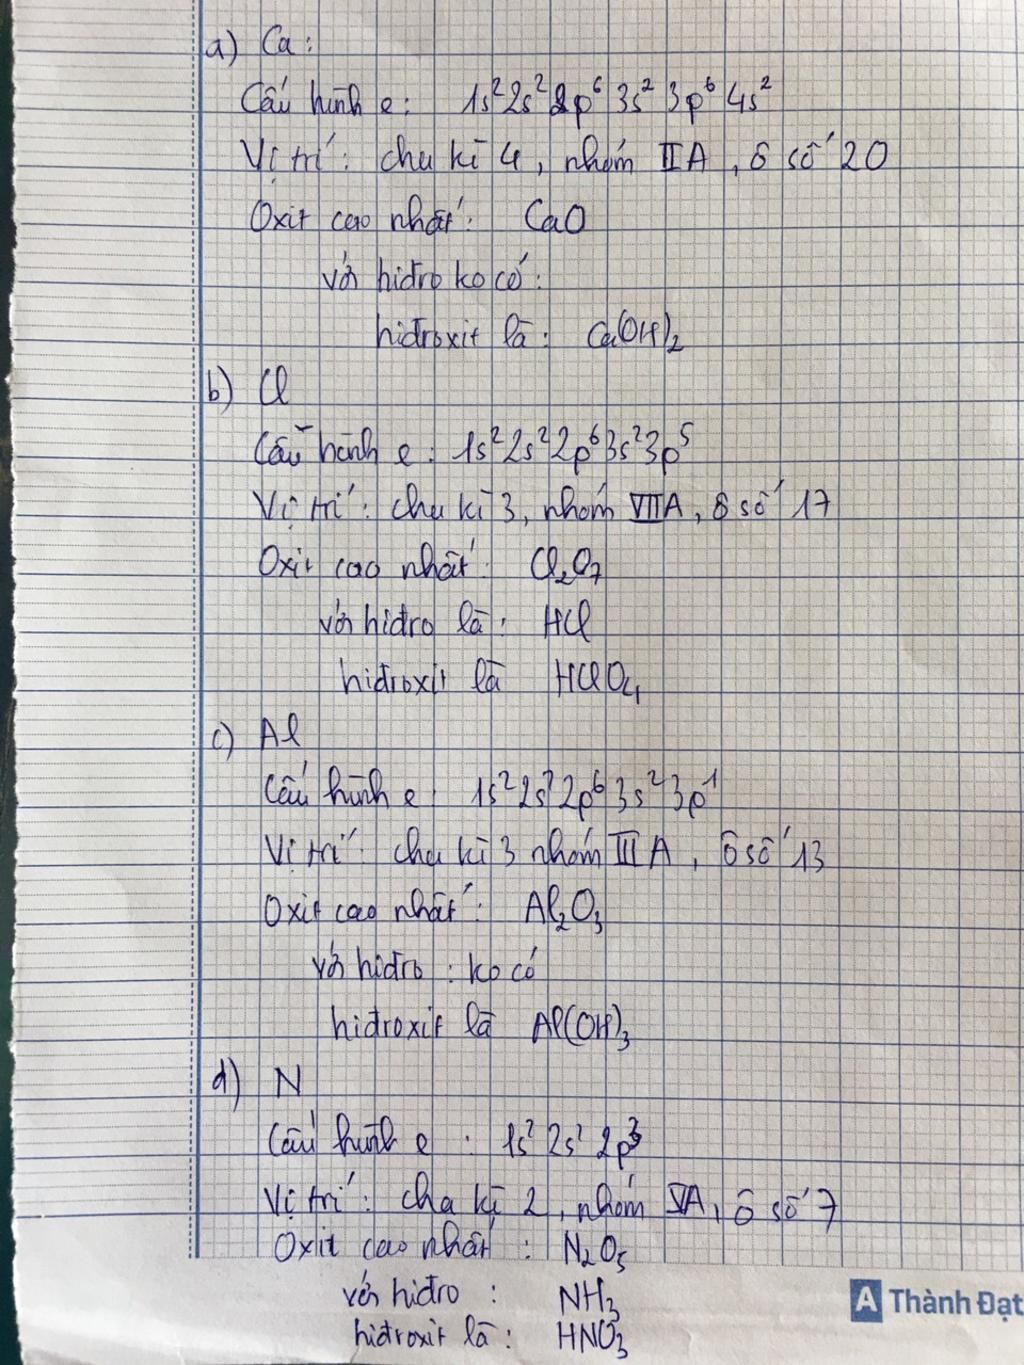 a) Ca:
Cấu hình e: 1s² 2s² 2p⁶ 3s² 3p⁶ 4s²
Vị trí: chu kì 4, nhóm IIA, ô số 20
Oxit cao nhất: CaO
với hiđro ko có:
hiđroxit là: Ca(OH)₂
b) Cl
Cấu hình e: 1s² 2s² 2p⁶ 3s² 3p⁵
Vị trí: chu kì 3, nhóm VIIA, ô số 17
Oxit cao nhất: Cl₂O₇
với hiđro là: HCl
hiđroxit là HClO₄
c) Al
Cấu hình e: 1s² 2s² 2p⁶ 3s² 3p¹
Vị trí: chu kì 3 nhóm IIIA, ô số 13
Oxit cao nhất: Al₂O₃
với hiđro: ko có
hiđroxit là Al(OH)₃
d) N
Cấu hình e: 1s² 2s² 2p³
Vị trí: chu kì 2, nhóm VA, ô số 7
Oxit cao nhất: N₂O₅
với hiđro: NH₃
hiđroxit là: HNO₃
A Thành Đạt